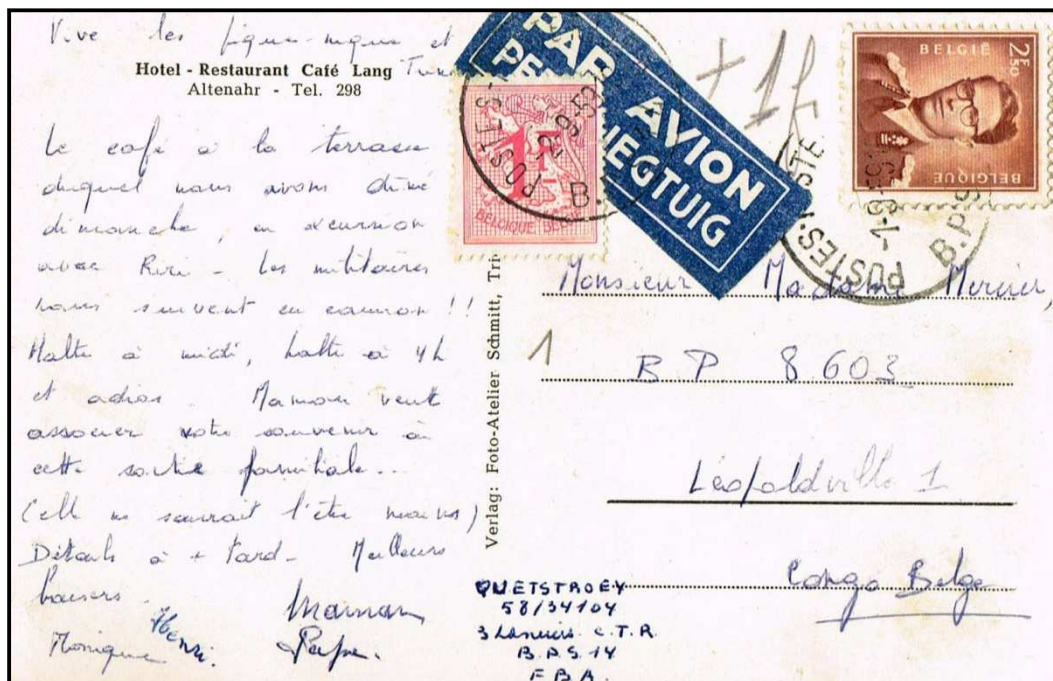 Vive les pique-nique et
Hotel - Restaurant Café Lang
Altenahr - Tel. 298
Le café à la terrasse
duquel nous avons dîné
dimanche, en excursion
avec Riri - Les militaires
nous suivent en camion !!
Halte à midi, halte à 4h
et adios. Maman veut
associer votre souvenir à
cette sortie familiale...
(elle ne saurait l'être moins)
Détails à + tard - Meilleurs
baisers.
Maman
Papa.
Monique
Henri.
Verlag: Foto-Atelier Schmitt,
PAR AVION
PER VLIEGTUIG
1F
BELGIQUE BELGIË
POSTES-
B.
+1f
BELGIË
2F50
BELGIQUE
POSTES-
B.P.S
Monsieur Madame Mercier,
1
B P 8603
Léopoldville 1
Congo Belge
QUETSTROEY
58/34104
3 Lanciers C.T.R.
B.P.S. 14
F B A.